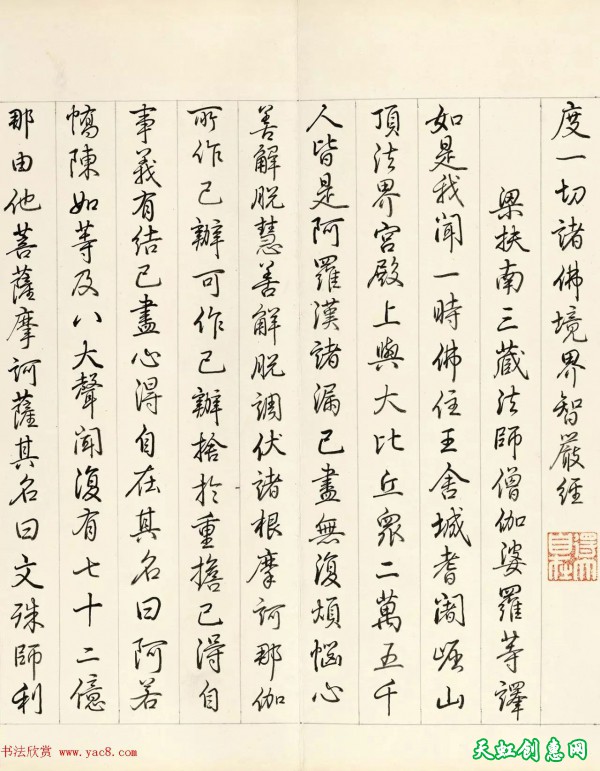 度一切諸佛境界智嚴經
梁扶南三藏法師僧伽婆羅等譯
如是我聞一時佛住王舍城耆闍崛山
頂法界宮殿上與大比丘眾二萬五千
人皆是阿羅漢諸漏已盡無復煩惱心
善解脫慧善解脫調伏諸根摩訶那伽
所作已辦可作已辦捨於重擔已得自
事義有結已盡心得自在其名曰阿若
憍陳如等及八大聲聞復有七十二億
那由他菩薩摩訶薩其名曰文殊師利
书法欣赏 www.yac8.com
天虹创惠网